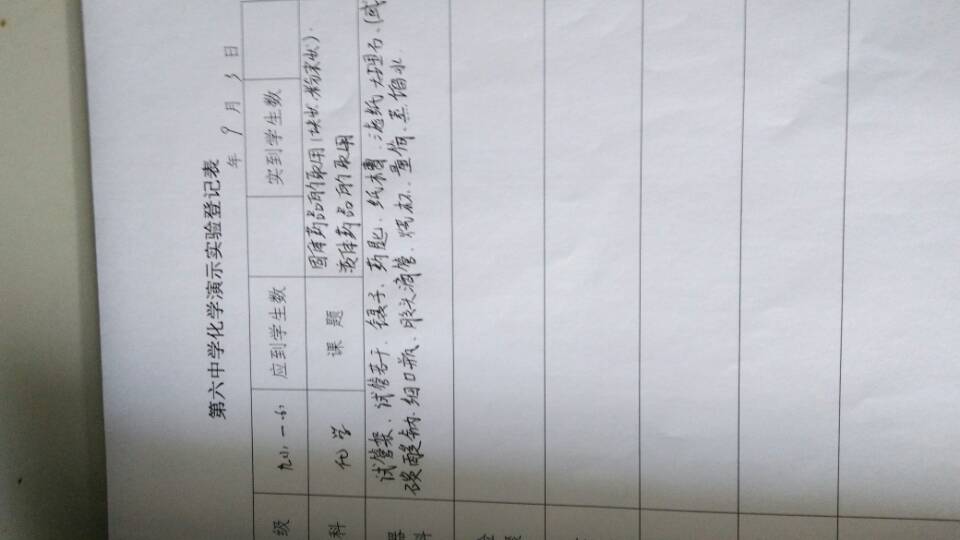 第六中学化学演示实验登记表
年 9 月 3 日
级 九 一 应到学生数 实到学生数
科 化学 课题 固体药品的取用(块状、粉末状).
液体药品的取用
试管架、试管若干、镊子、药匙、纸槽、滤纸、大理石、(或
碳酸钠、细口瓶、胶头滴管、烧杯、量筒、蒸馏水